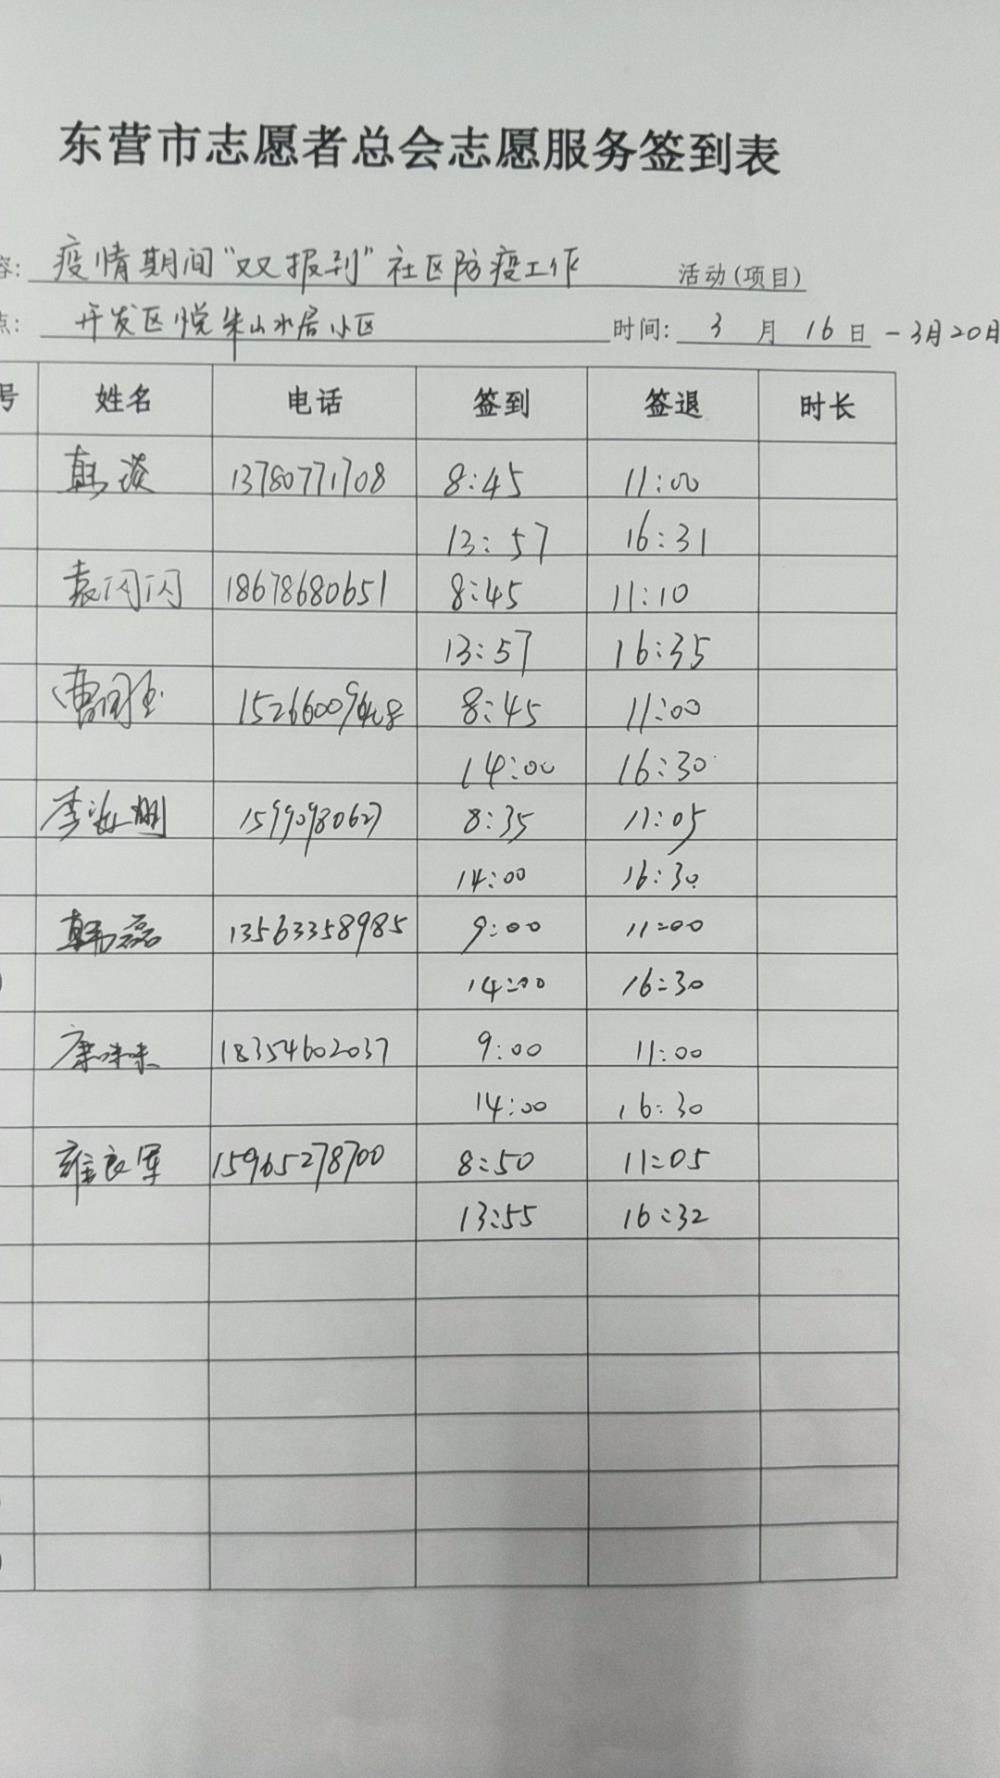 东营市志愿者总会志愿服务签到表
容: 疫情期间"双报到"社区防疫工作 活动(项目)
点: 开发区悦隼山水居小区 时间: 3 月 16 日 -3月20日
号 姓名 电话 签到 签退 时长
韩 13780771708 8:45 11:00
13:57 16:31
袁闪闪 18678680651 8:45 11:10
13:57 16:35
曹 8:45 11:00
14:00 16:30
李 15990980627 8:35 11:05
14:00 16:30
韩磊 13563358985 9:00 11:00
14:00 16:30
康味味 18354602037 9:00 11:00
14:00 16:30
雒良军 15965278700 8:50 11:05
13:55 16:32